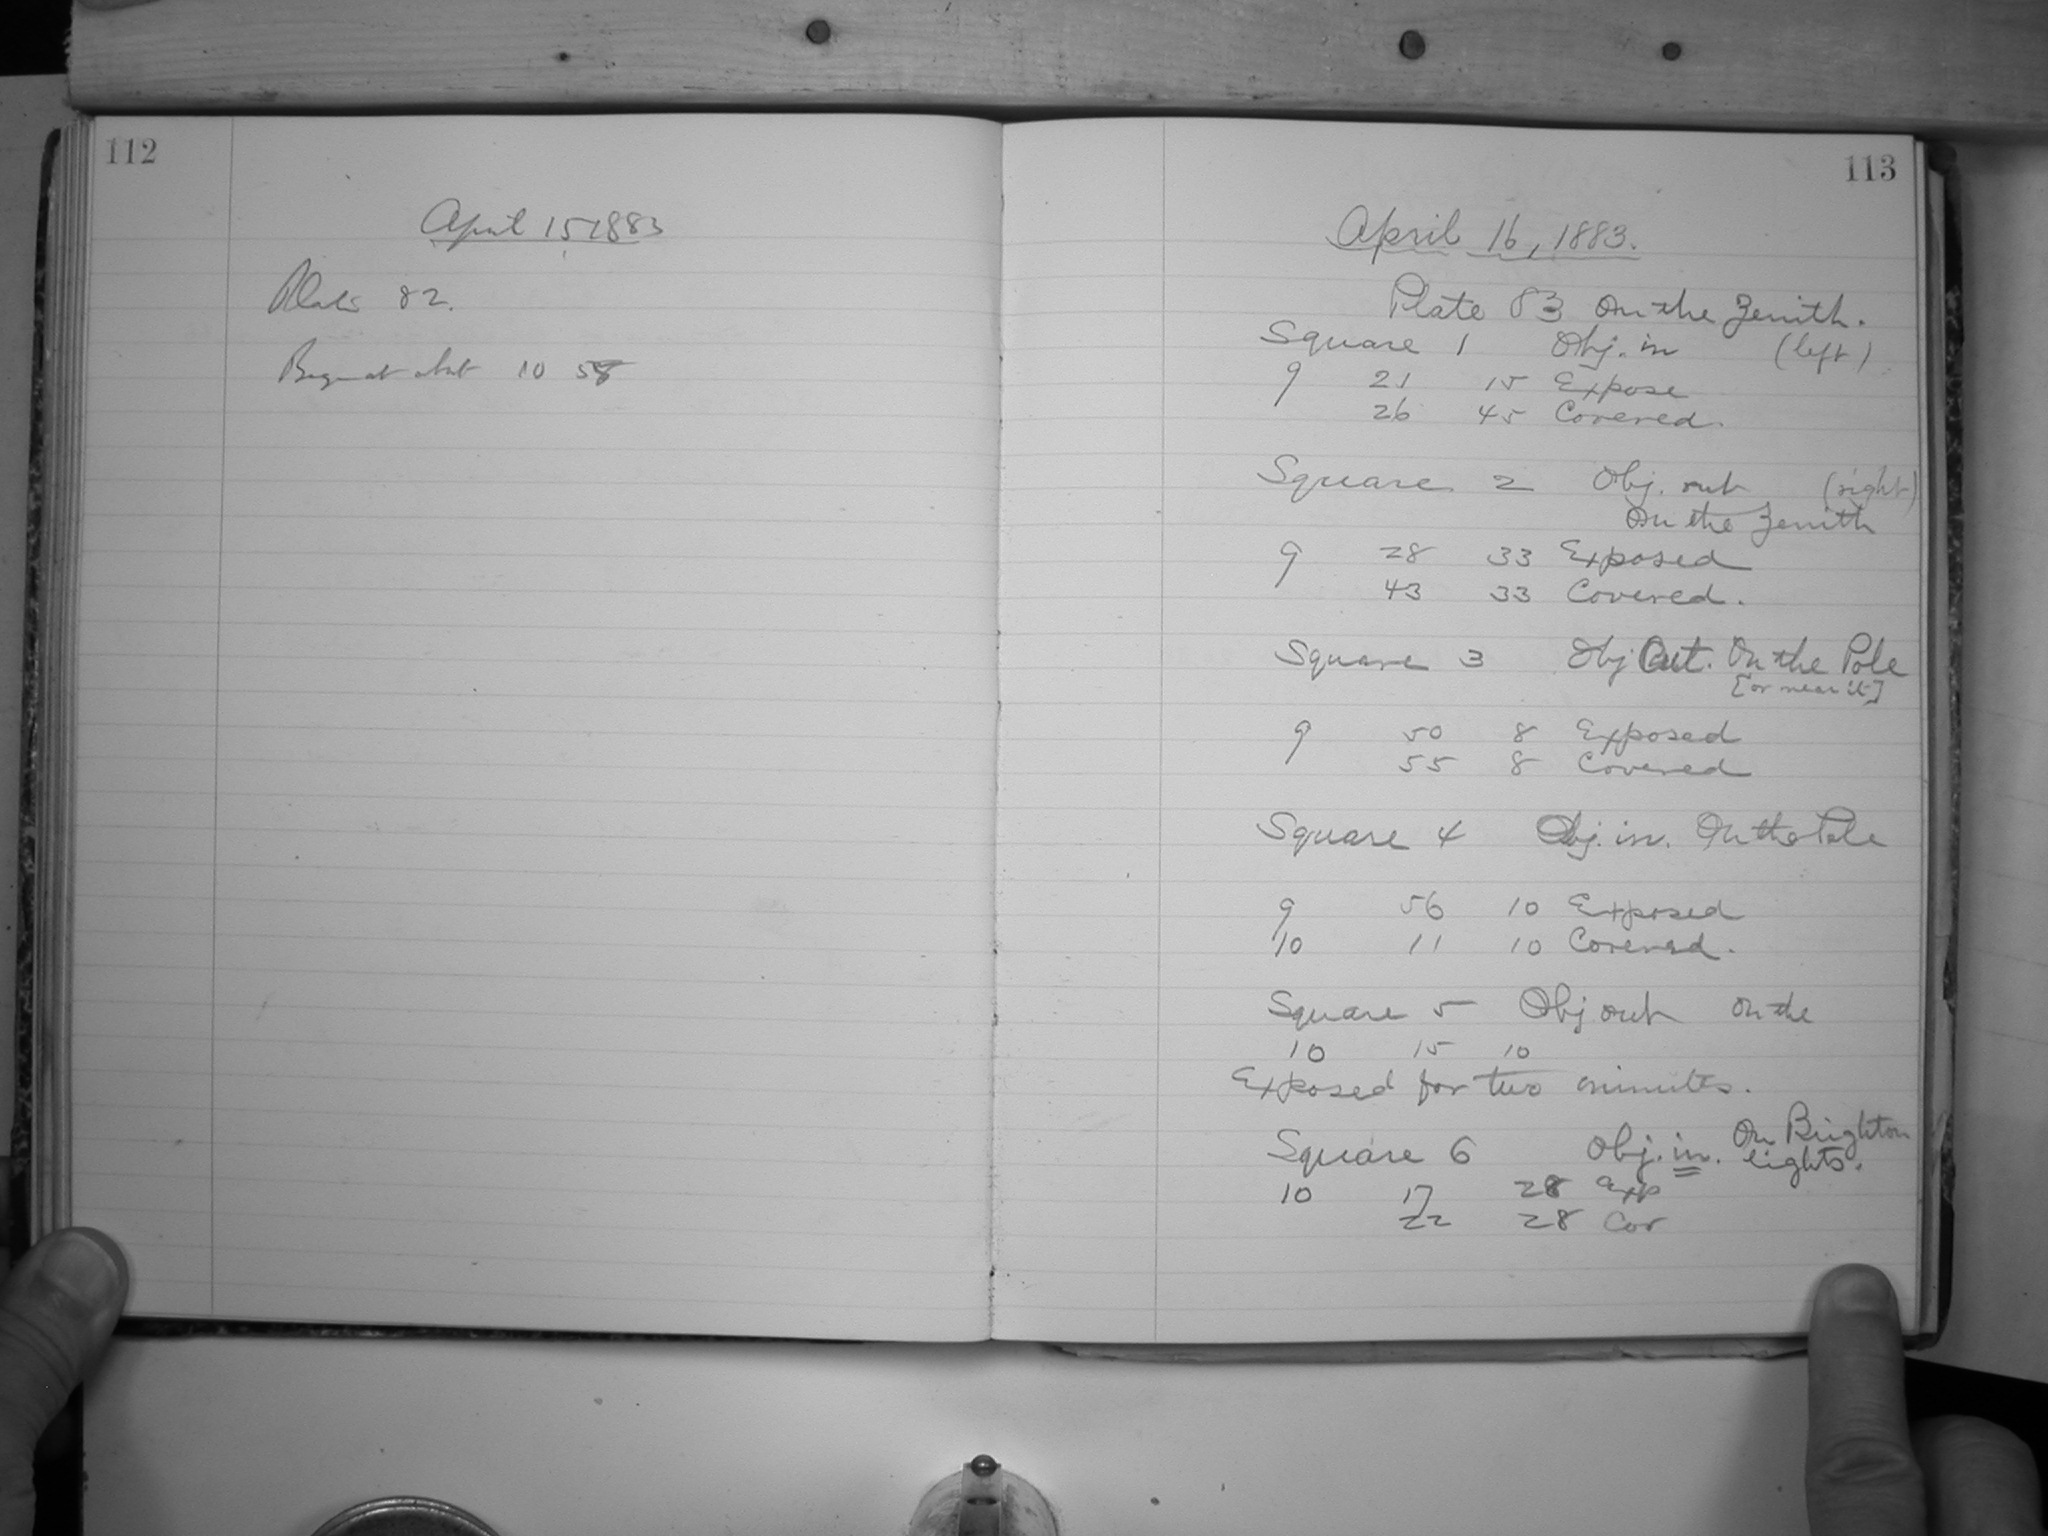 112
April 15 1883
Plate 82.
Began at abt 10 58
113
April 16, 1883.
Plate 83 On the Zenith.
Square 1 Obj. in (left)
9 21 15 Expose
26 45 Covered.
Square 2 Obj. out (right)
On the Zenith
9 28 33 Exposed
43 33 Covered.
Square 3 Obj Out. On the Pole
[or near it]
9 50 8 Exposed
55 8 Covered
Square 4 Obj. in. On the Pole
9 56 10 Exposed
10 11 10 Covered.
Square 5 Obj out on the
10 15 10
Exposed for two minutes.
Square 6 Obj. in. On Brighton
lights.
10 17 28 Exp
22 28 Cov